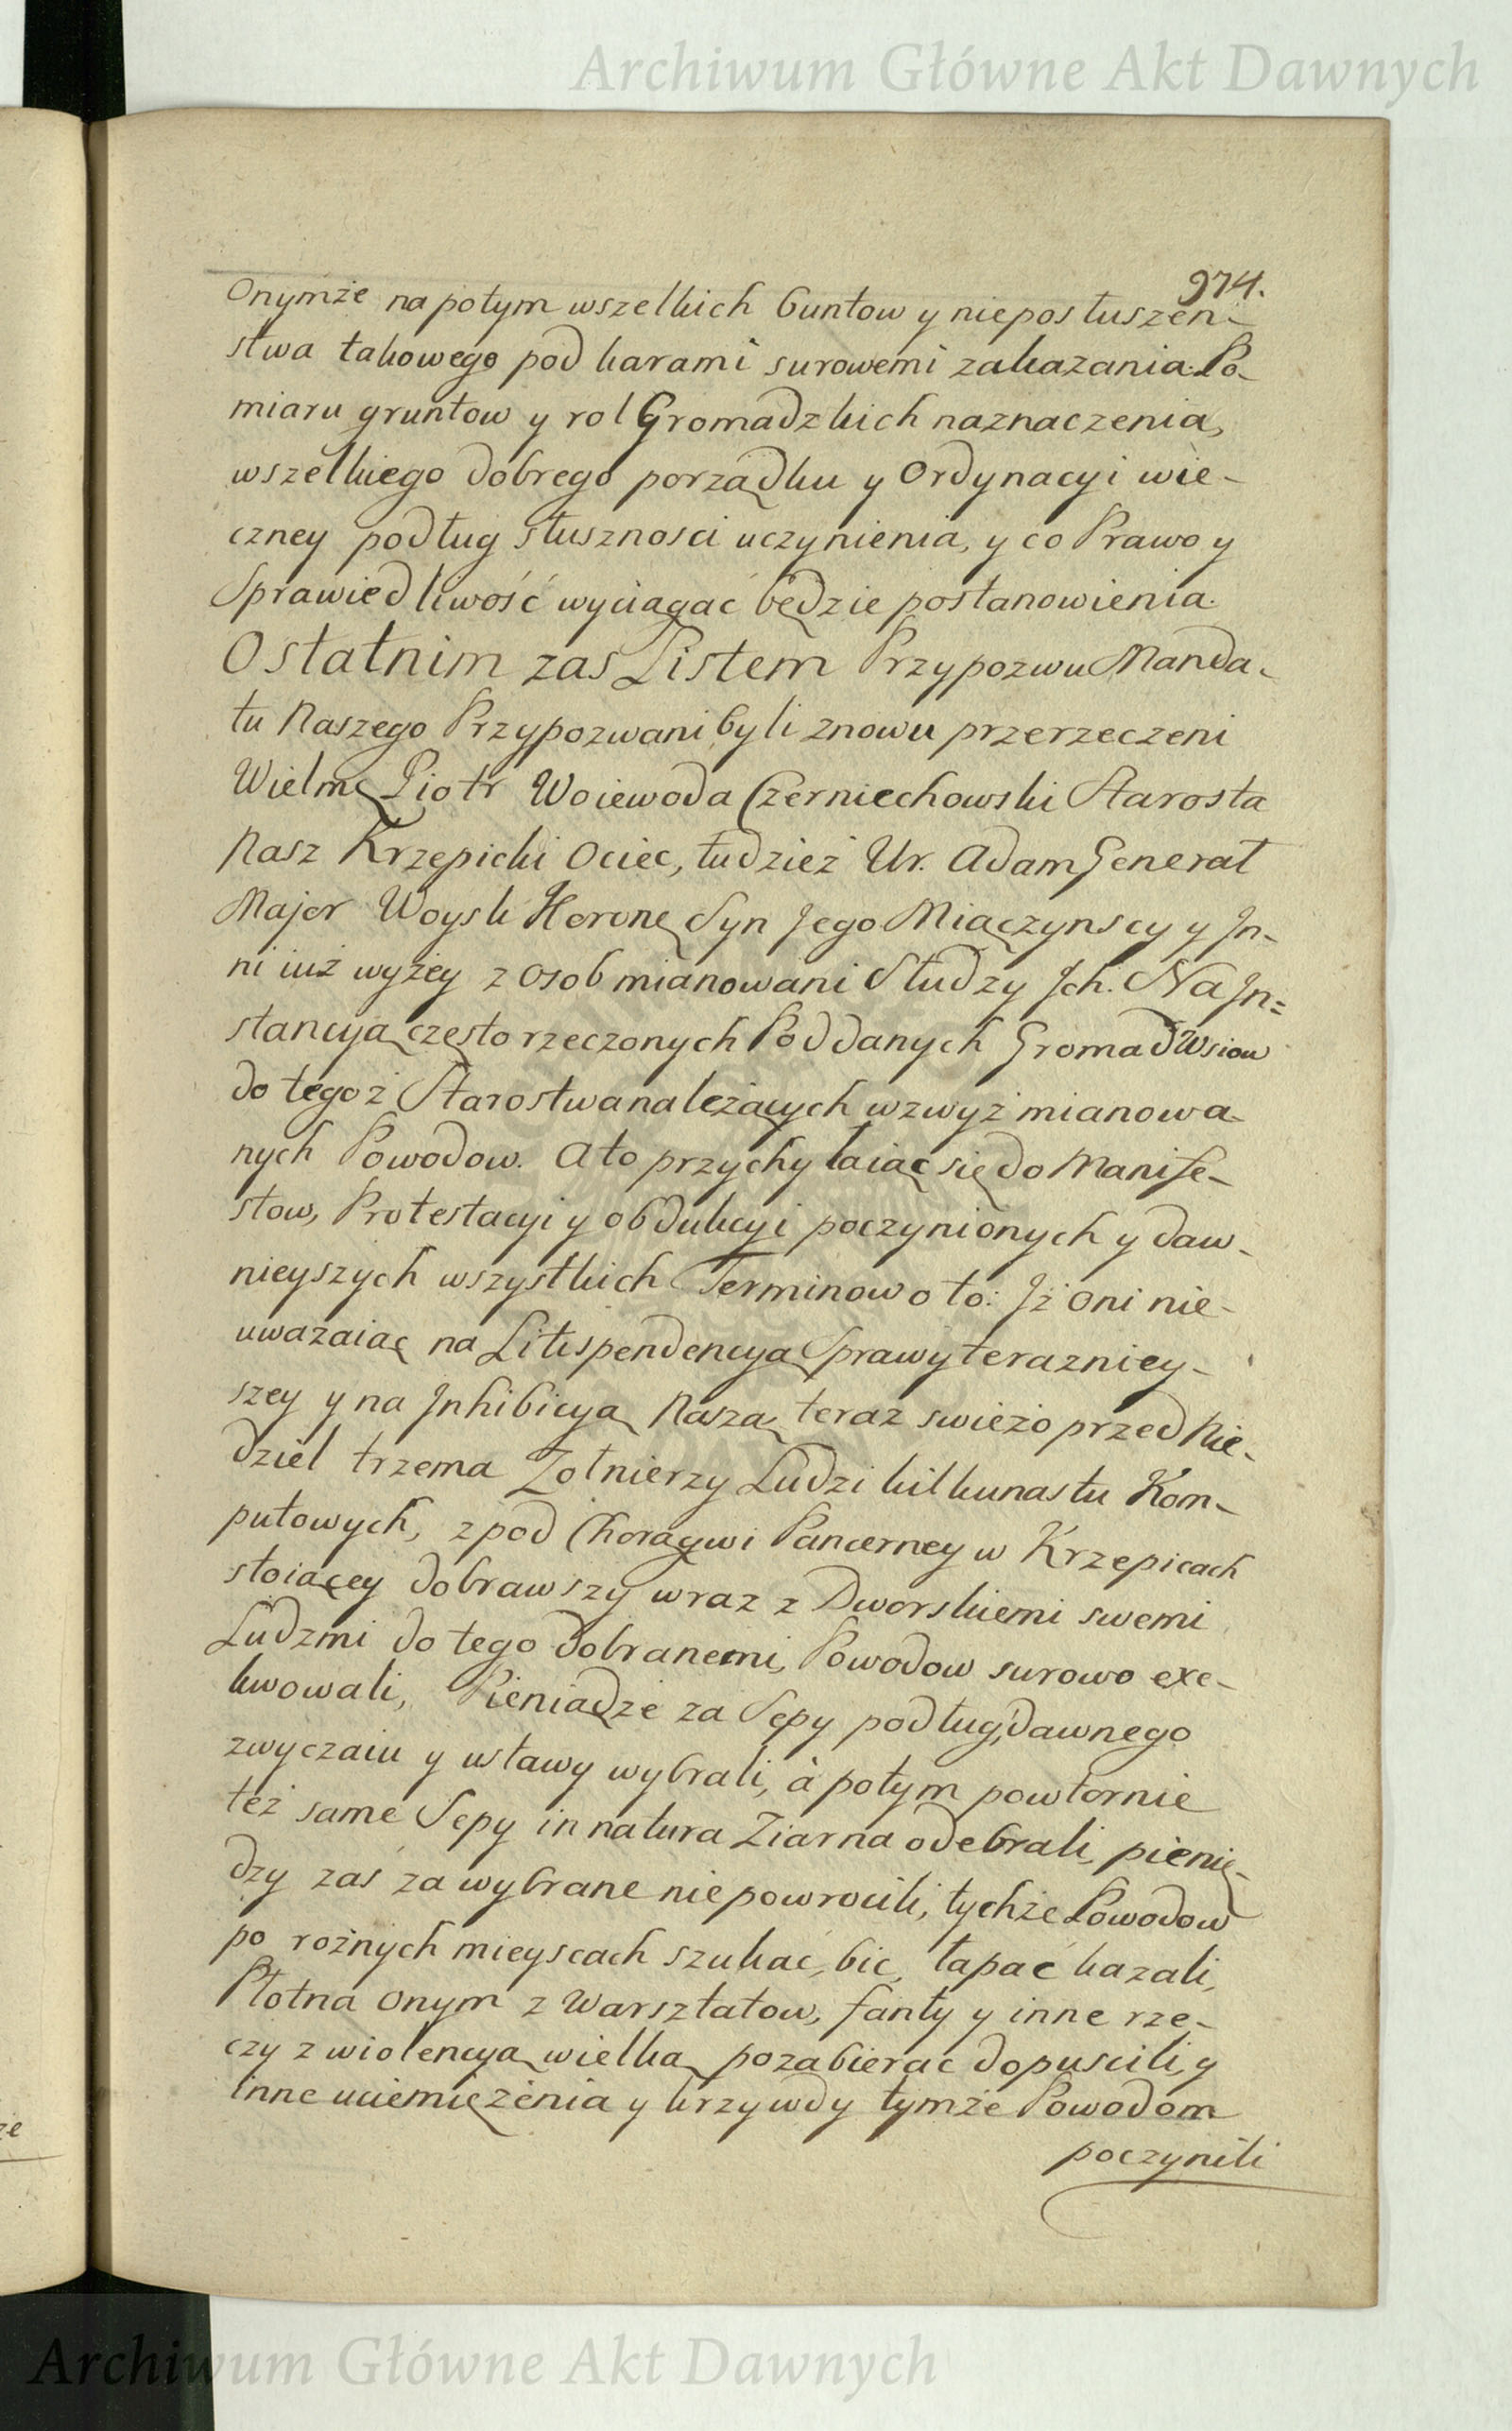 Archiwum Główne Akt Dawnych
974.
Onymże na potym wszelkich buntow y nieposłuszen-
stwa takowego pod karami surowemi zakazania: Po-
miaru gruntow y rol Gromadzkich naznaczenia,
wszelkiego dobrego porządku y Ordynacyi wie-
czney podług słusznosci uczynienia, y co Prawo y
Sprawiedliwość wyciągać będzie postanowienia.
Ostatnim zas Listem Przypozwu Manda-
tu Naszego Przypozwani byli znowu przerzeczeni
Wielmę Piotr Woiewoda Czerniechowski Starosta
Nasz Krzepicki Ociec, tudzież Ur. Adam Generał
Major Woysk Koronę Syn Jego Miączynscy y In-
ni iuż wyżey z osob mianowani Słudzy Ich. Na In=
stancyą często rzeczonych Poddanych Gromad Wsiow
do tegoż Starostwa należących wzwyż mianowa-
nych Powodow. A to przychylaiąc się do Manife-
stow, Protestacyi y obdukcyi poczynionych y daw-
nieyszych wszystkich Terminow o to: Iż oni nie-
uważaiąc na Litispendencyą Sprawy terazniey-
szey y na Inhibicyą Naszą teraz swieżo przed Nie-
dziel trzema Zołnierzy Ludzi kilkunastu Kom-
putowych, z pod Chorągwi Pancerney w Krzepicach
stoiącey dobrawszy wraz z Dworskiemi swemi
Ludzmi do tego dobranemi, Powodow surowo exe-
kwowali, Pieniądze za Sepy podług dawnego
zwyczaiu y ustawy wybrali, à potym powtornie
też same Sepy in natura Ziarna odebrali, pienię-
dzy zas za wybrane niepowrocili, tychże Powodow
po rożnych mieyscach szukać, bic, łapać kazali,
Płotna onym z Warsztatow, fanty y inne rze-
czy z wiolencyą wielką pozabierac dopuscili, y
inne uciemiężenia y krzywdy tymże Powodom
poczynili
Archiwum Główne Akt Dawnych